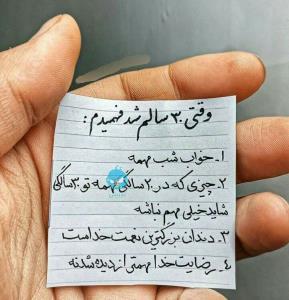 وقتی ۳۰ سالم شد فهمیدم:
۱. خواب شب مهمه
۲. چیزی که در ۲۰ سالگی مهمه تو ۳۰ سالگی
شاید خیلی مهم نباشه
۳. دندان بزرگترین نعمت خداست
۴. رضایت خدا مهمتر از دیده شدنه